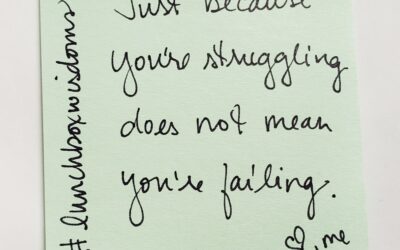 Just because
you're struggling
does not mean
you're failing.
♡, me
#lunchboxwisdoms